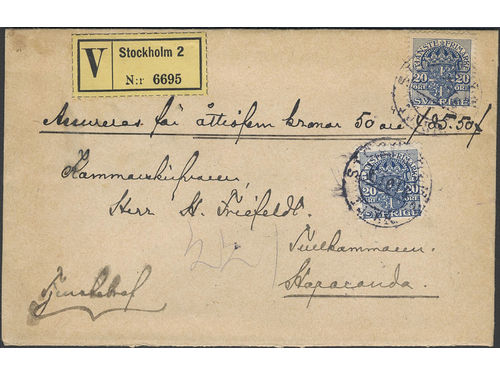 V Stockholm 2
N:r 6695
TJÄNSTE FRIMÄRKE
20 20
ÖRE ÖRE
SVERIGE
Assureras för åttiofem kronor 50 öre / 85.50 /
Kammarskrifvaren
Herr H. Friefeldt.
Tullkammaren.
Haparanda.
Tjenstebref
20 20
SVERIGE